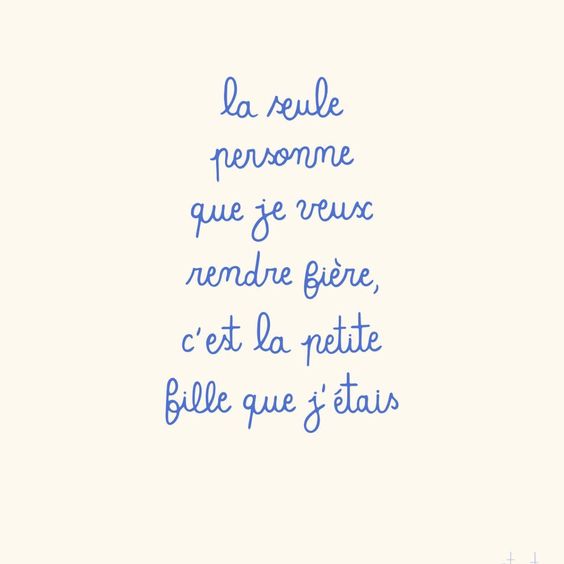 la seule
personne
que je veux
rendre fière,
c'est la petite
fille que j'étais